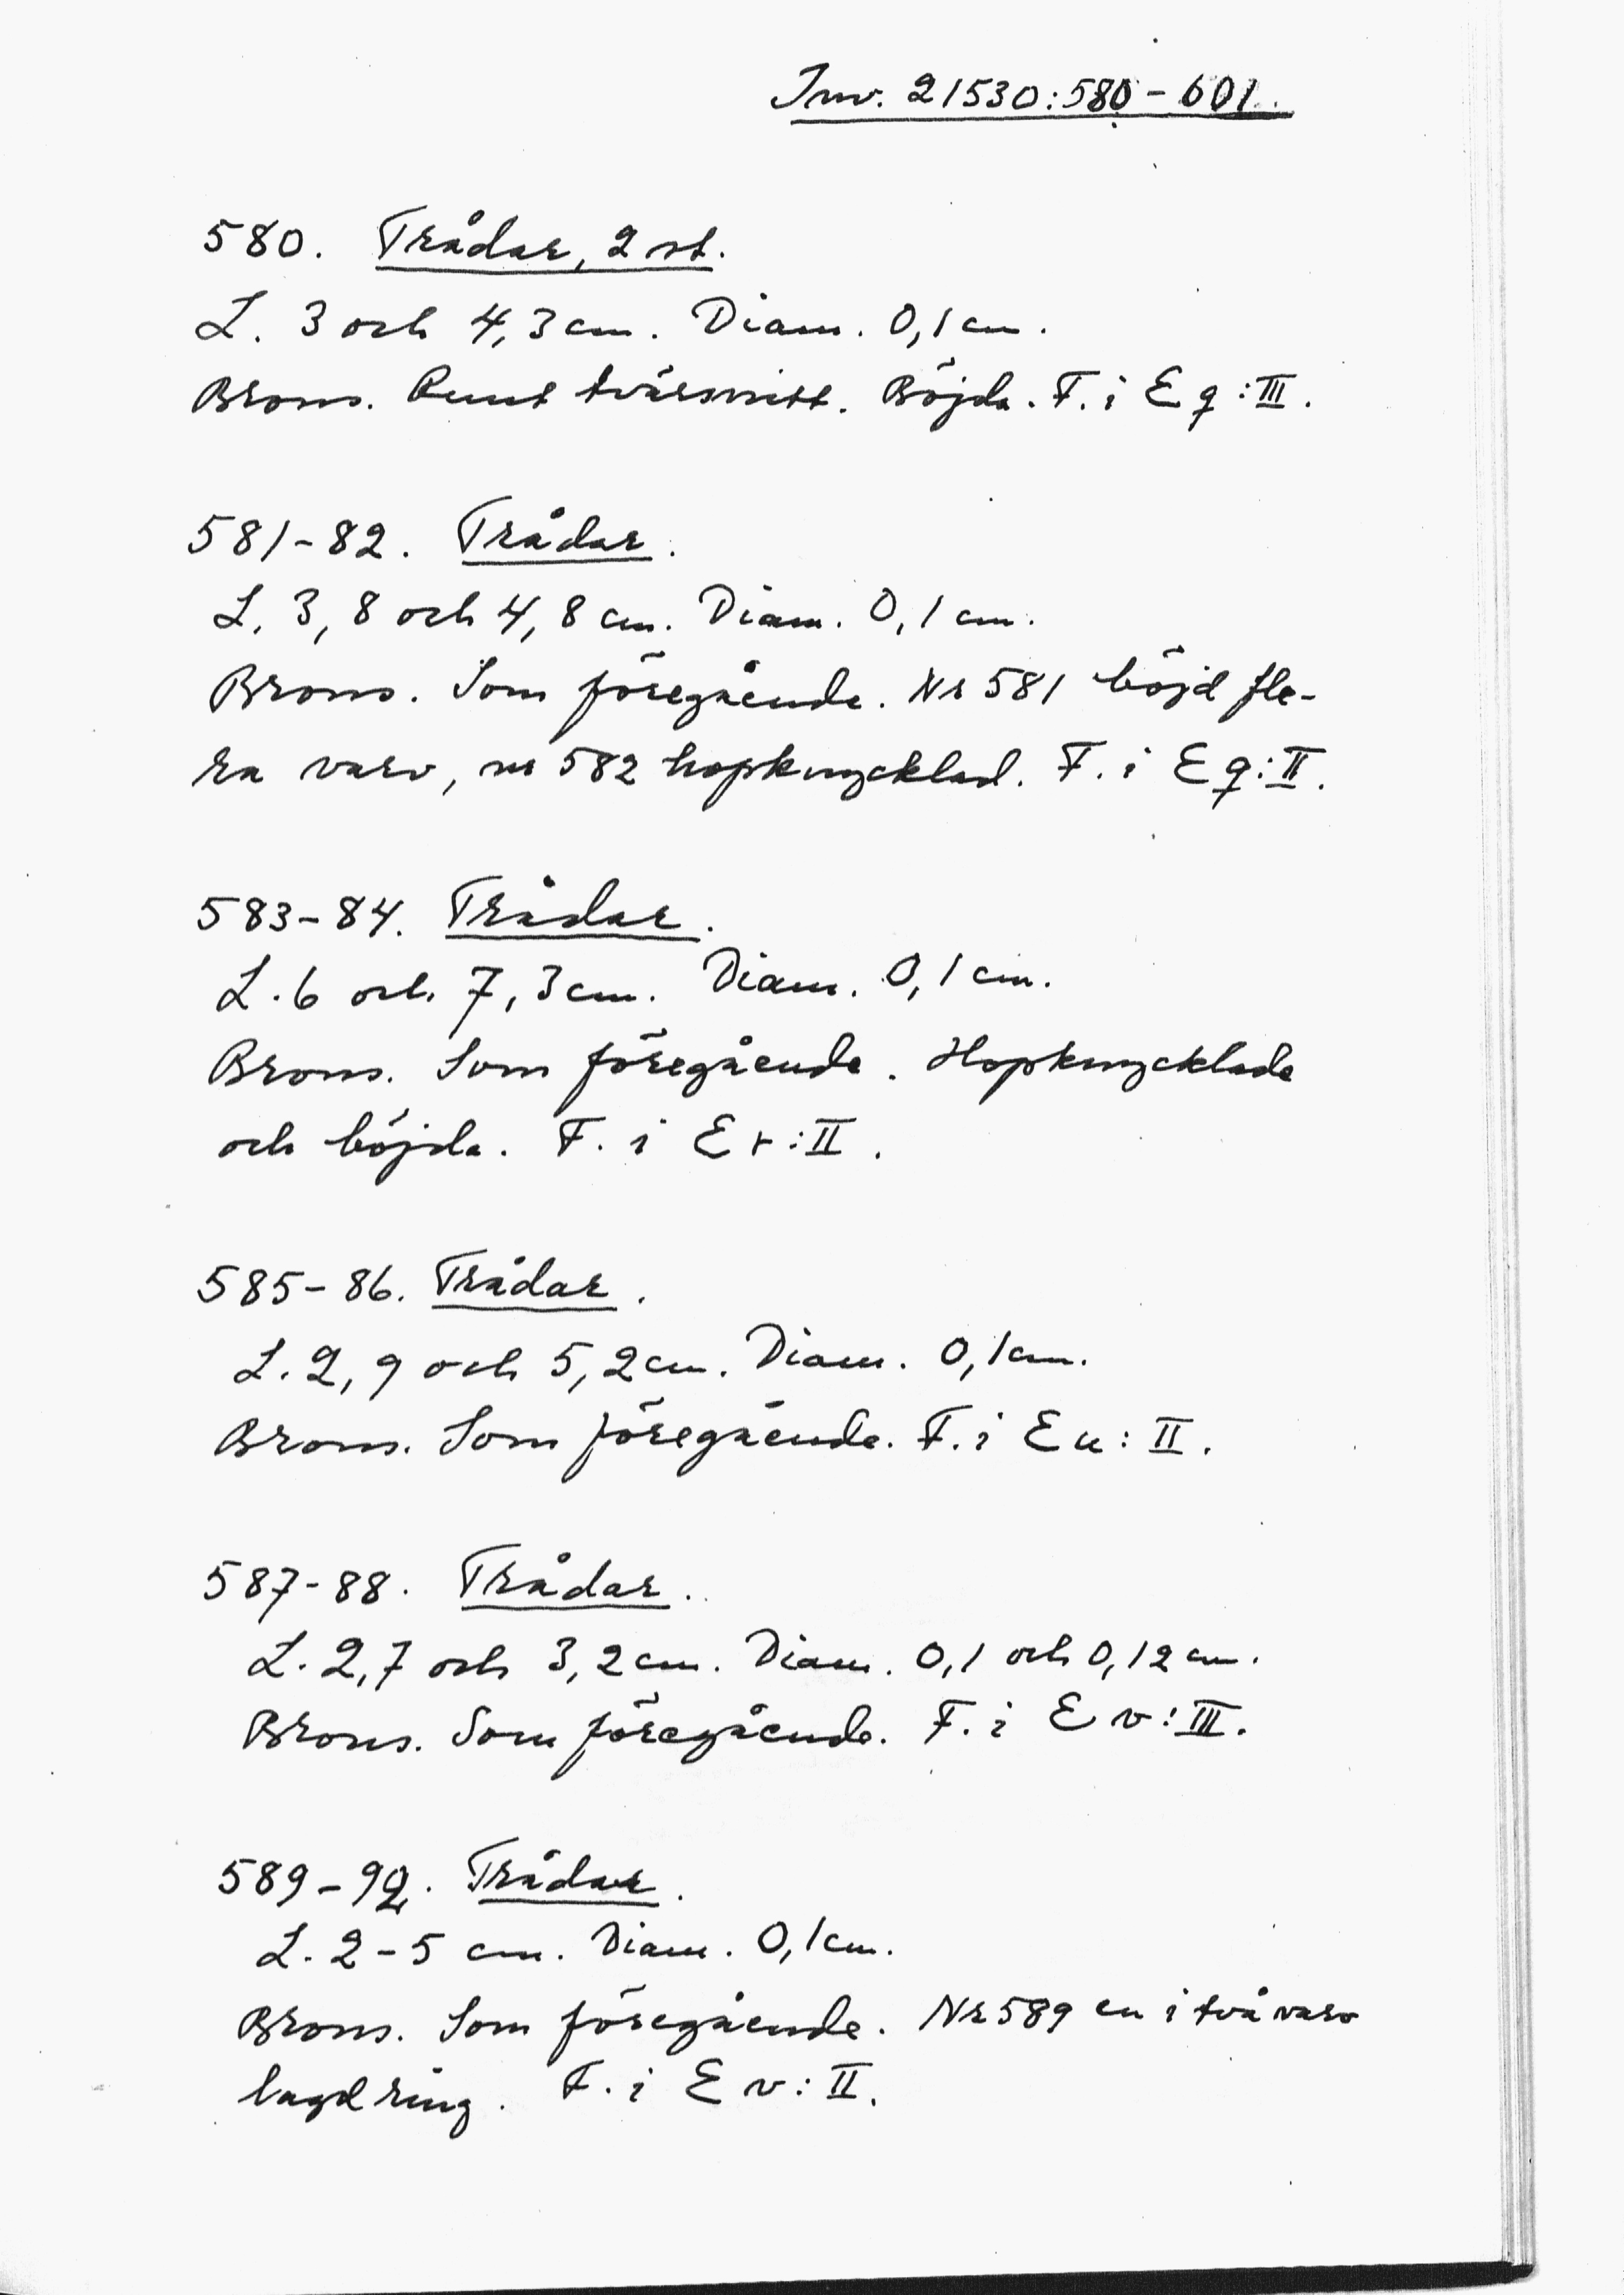 Inv. 21530:580-601.
580. Trådar, 2 st.
L. 3 och 4,3 cm. Diam. 0,1 cm.
Brons. Runt tvärsnitt. Böjda. F. i E q:III.
581-82. Trådar.
L. 3,8 och 4,8 cm. Diam. 0,1 cm.
Brons. Som föregående. Nr 581 böjd fle-
ra varv, nr 582 hopknycklad. F. i E q:II.
583-84. Trådar.
L. 6 och 7,3 cm. Diam. 0,1 cm.
Brons. Som föregående. Hopknycklade
och böjda. F. i E r:II.
585-86. Trådar.
L. 2,9 och 5,2 cm. Diam. 0,1 cm.
Brons. Som föregående. F. i E u:II.
587-88. Trådar.
L. 2,7 och 3,2 cm. Diam. 0,1 och 0,12 cm.
Brons. Som föregående. F. i E v:III.
589-92. Trådar.
L. 2-5 cm. Diam. 0,1 cm.
Brons. Som föregående. Nr 589 en i två varv
lagd ring. F. i E v:II.